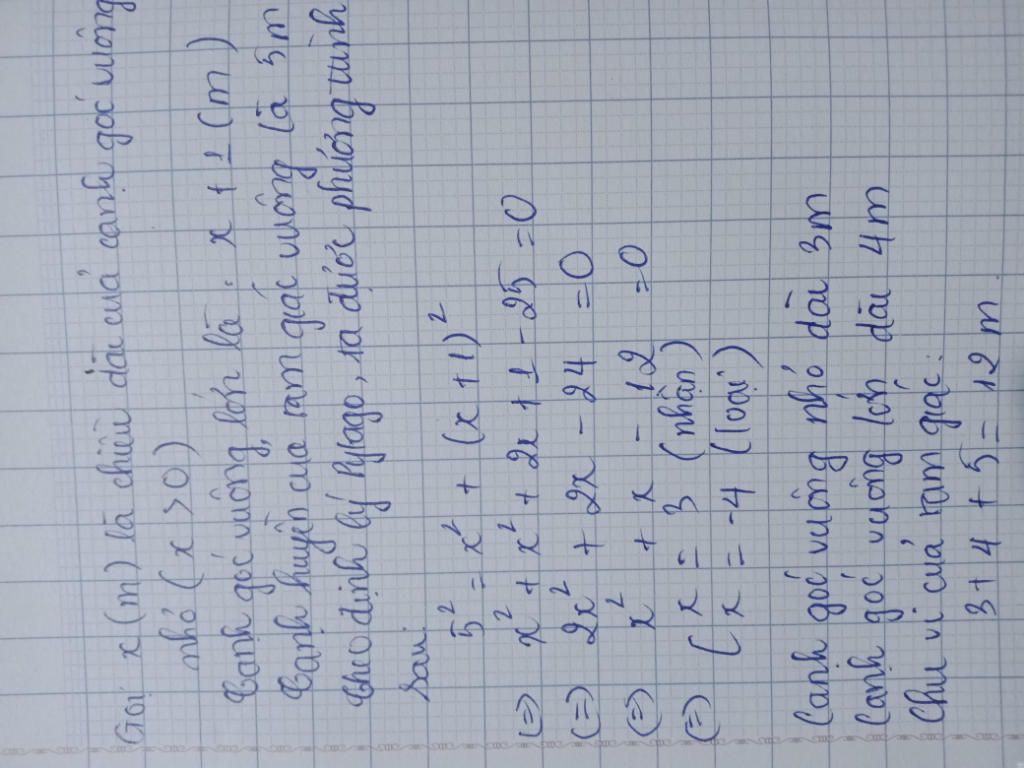 Gọi x (m) là chiều dài của cạnh góc vuông
nhỏ (x > 0)
Cạnh góc vuông lớn là : x + 1 (m)
Cạnh huyền của tam giác vuông là 5m
Theo định lý Pytago, ta được phương trình
sau:
5² = x² + (x + 1)²
(=) x² + x² + 2x + 1 - 25 = 0
(=) 2x² + 2x - 24 = 0
(=) x² + x - 12 = 0
(=) [ x = 3 (nhận)
[ x = -4 (loại)
Cạnh góc vuông nhỏ dài 3m
Cạnh góc vuông lớn dài 4m
Chu vi của tam giác:
3 + 4 + 5 = 12 m.